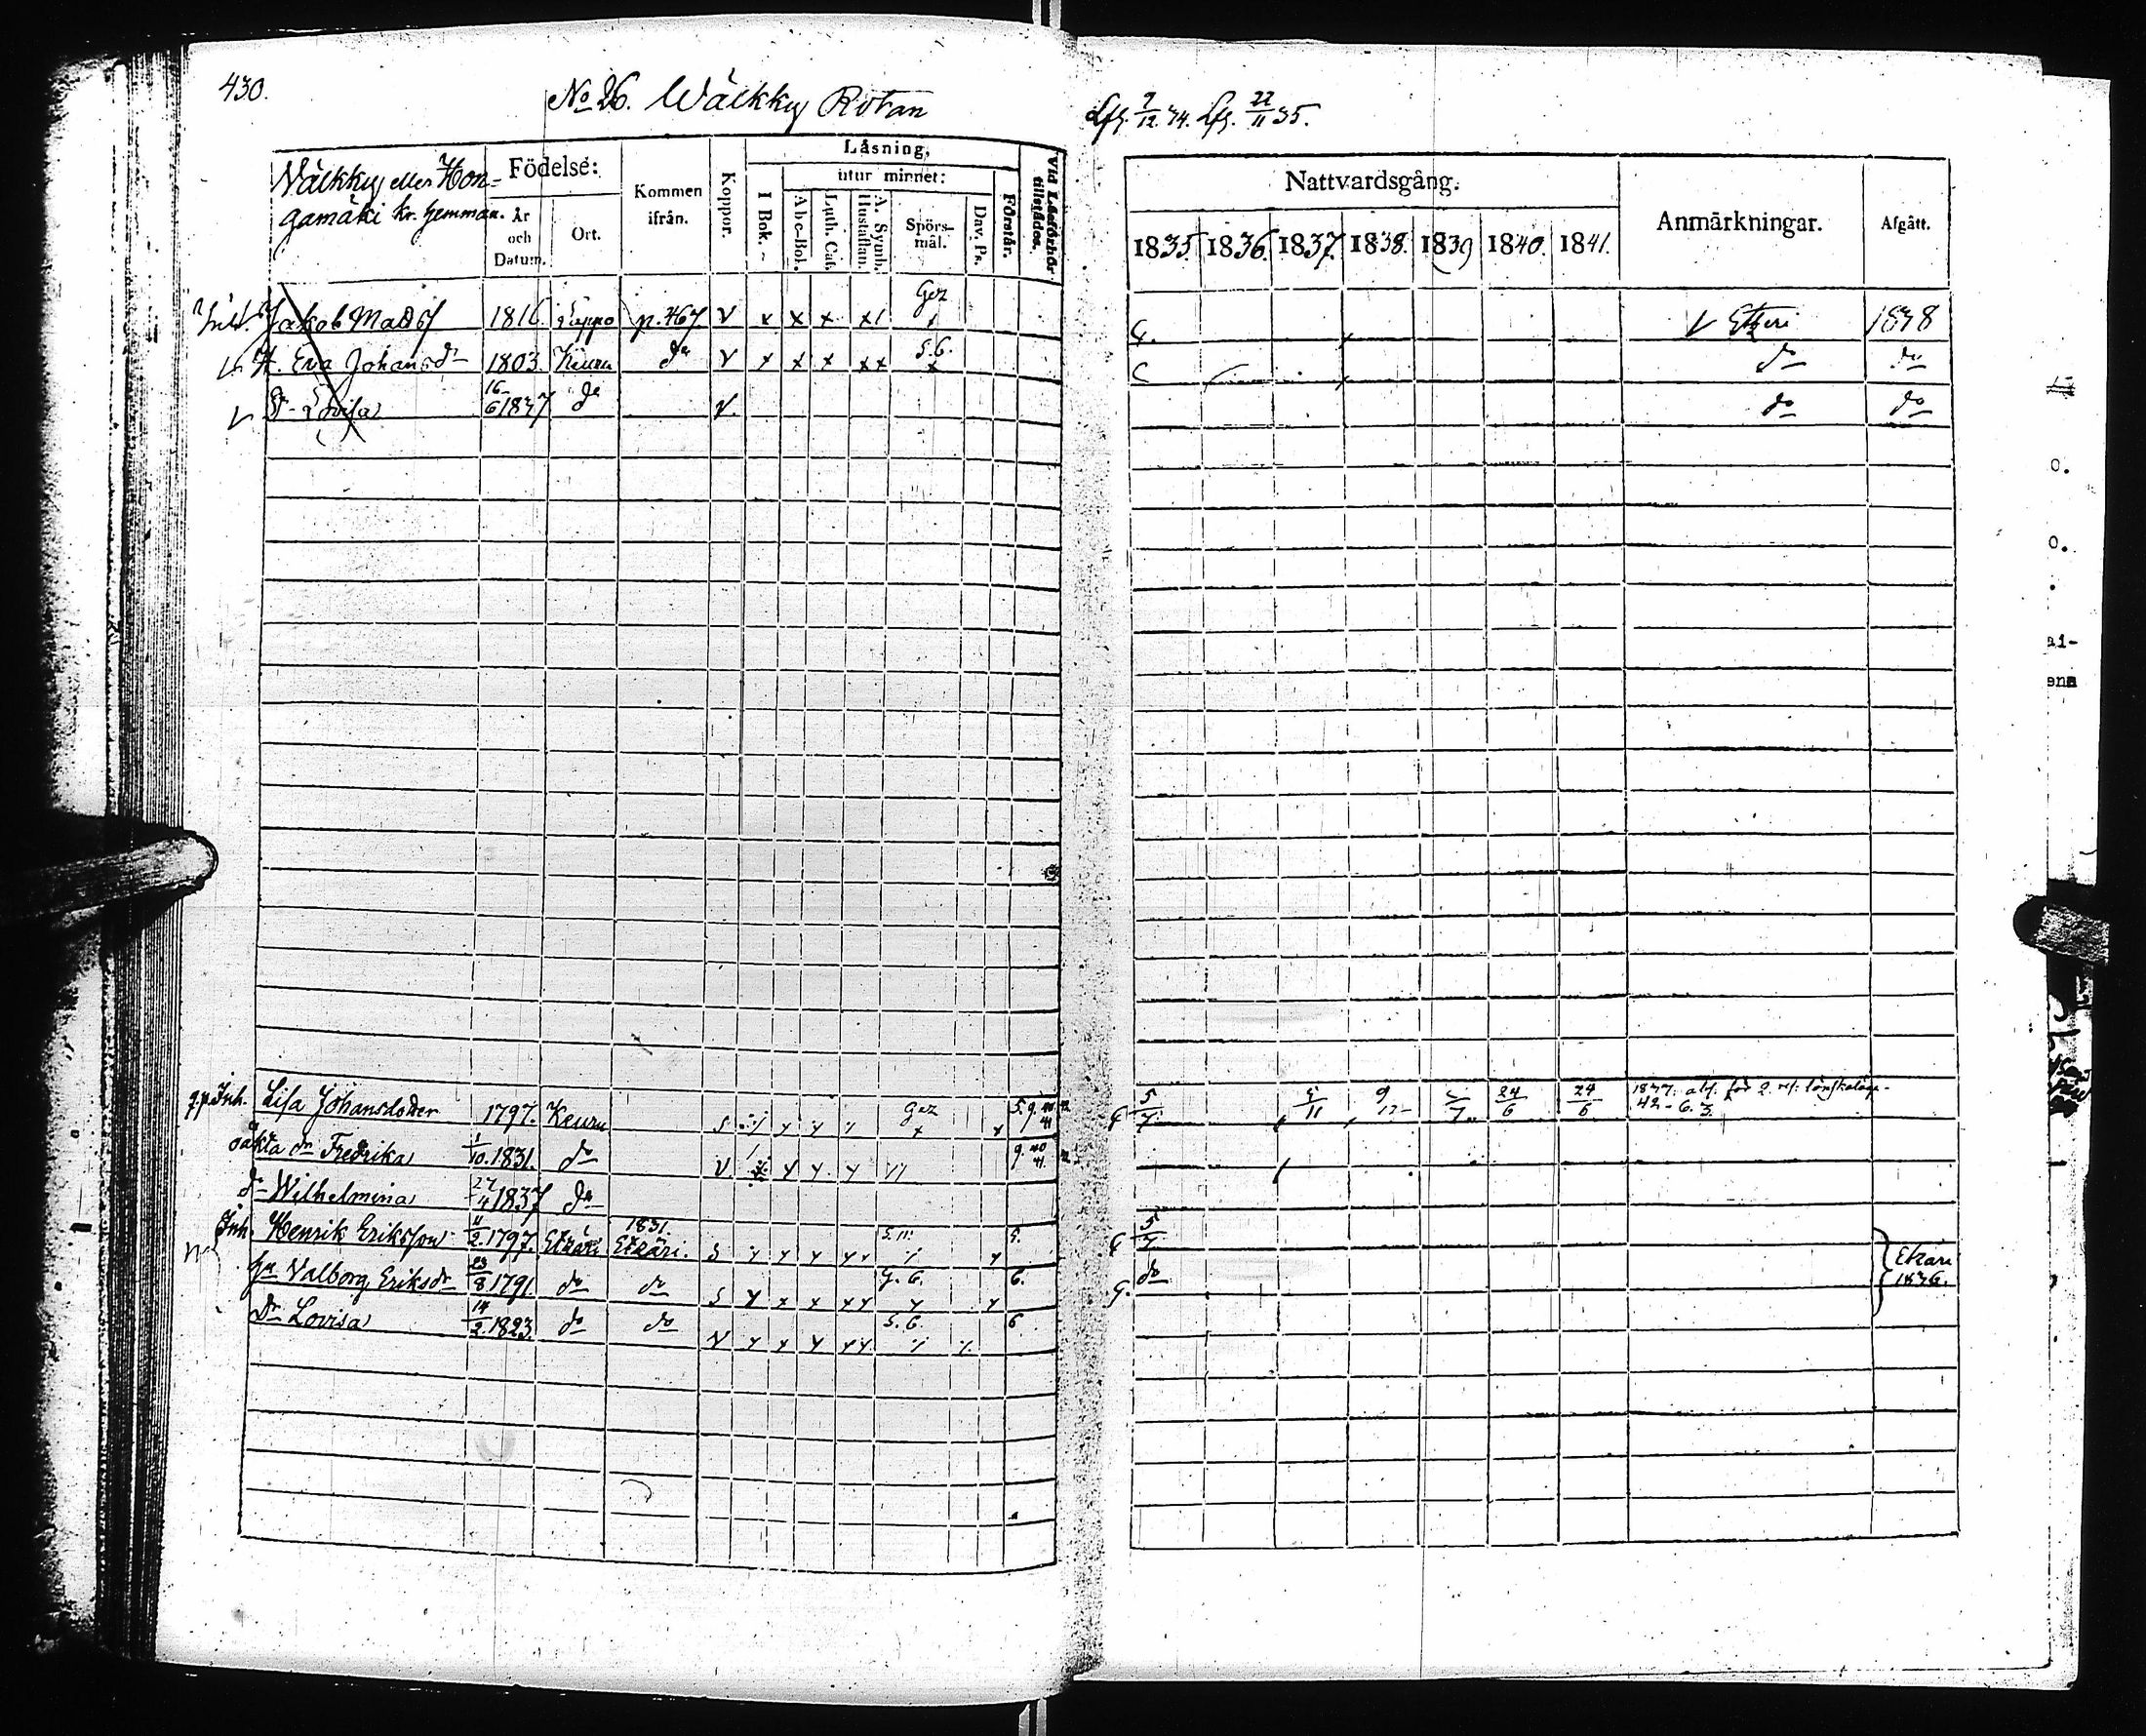 430.
No 26. Wäckky Rotan
Näckky eller Hon-
gamäki kr. hemman.
Födelse:
År och Datum.
Ort.
Kommen ifrån.
Koppor.
Läsning,
I Bok.
utur minnet:
Abc-Bok.
Luth. Cat.
A. Symb. Hustaflan.
Spörs-mål.
Dav. Ps.
Förstår.
Vid Läsförhör tillstådes.
Jakob Matss 1816. Lappo p. 467 V x x x x Gez
H. Eva Johansdr 1803. Keuru do V x x x x x 5.6. x
Dr Lovisa 16/6 1837 do V.
Inh. Lisa Johansdotter 1797. Keuru S Gez 5.9. 40 41
oäkta dr Fredrika 1/10. 1831. do V 9. 40 41.
do Wilhelmina 27/4 1837 do
Inh. Henrik Eriksson 11/2. 1797. Etzäri 1831. Etzäri. S 5.11. 5.
Hu Valborg Eriksdr 23/8 1791. do do S 6.
Dr Lovisa 14/2. 1823. do do V 5.6. 6
Nattvardsgång.
1835. 1836. 1837. 1838. 1839 1840. 1841.
Anmärkningar.
Afgått.
Etzeri 1838
do do
do do
5/7. 5/11 9/12 24/6 24/6 1837. abs. för 2. res: lönskaläge-
42-6.3.
5/7.
do
Etzäri
1836.
0.
0.
ai-
ena